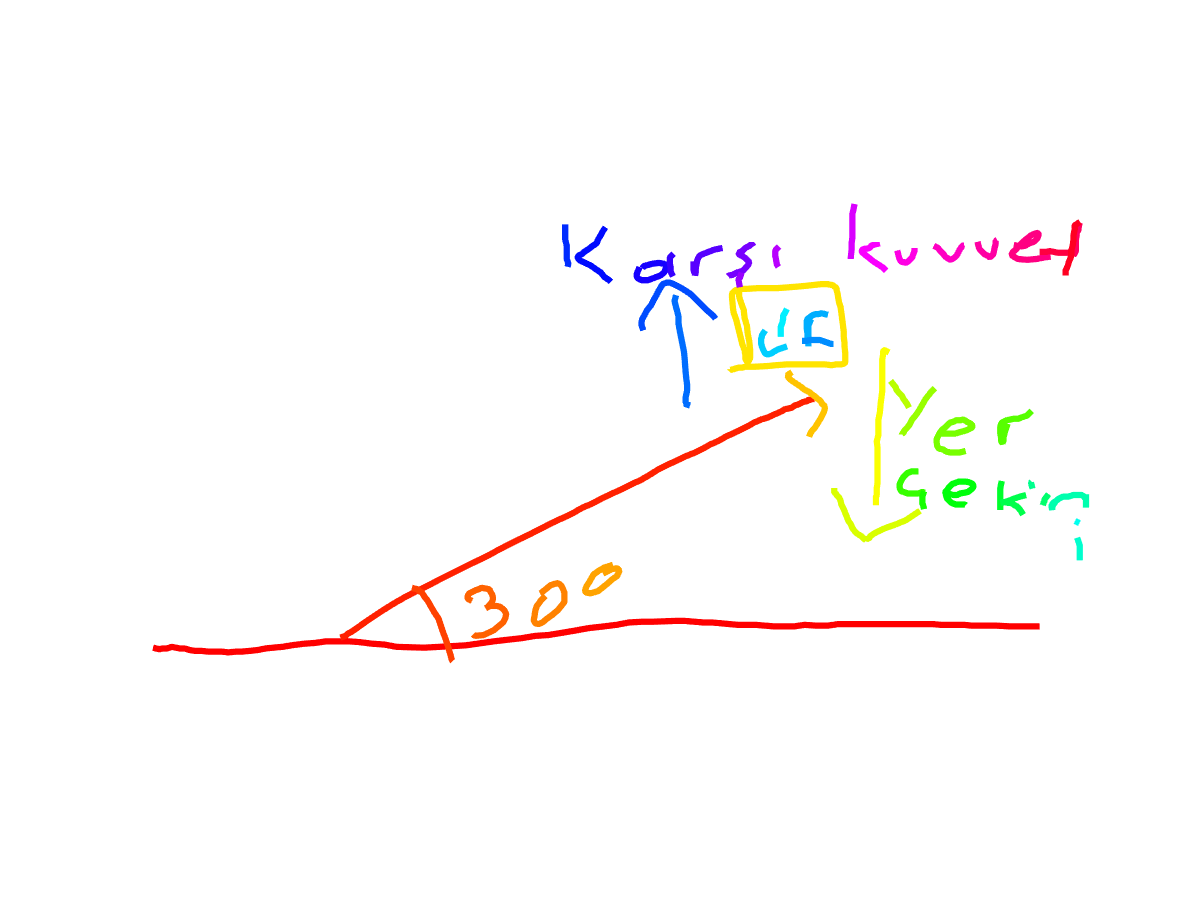 Karşı kuvvet
Yer
Çekim
i
300